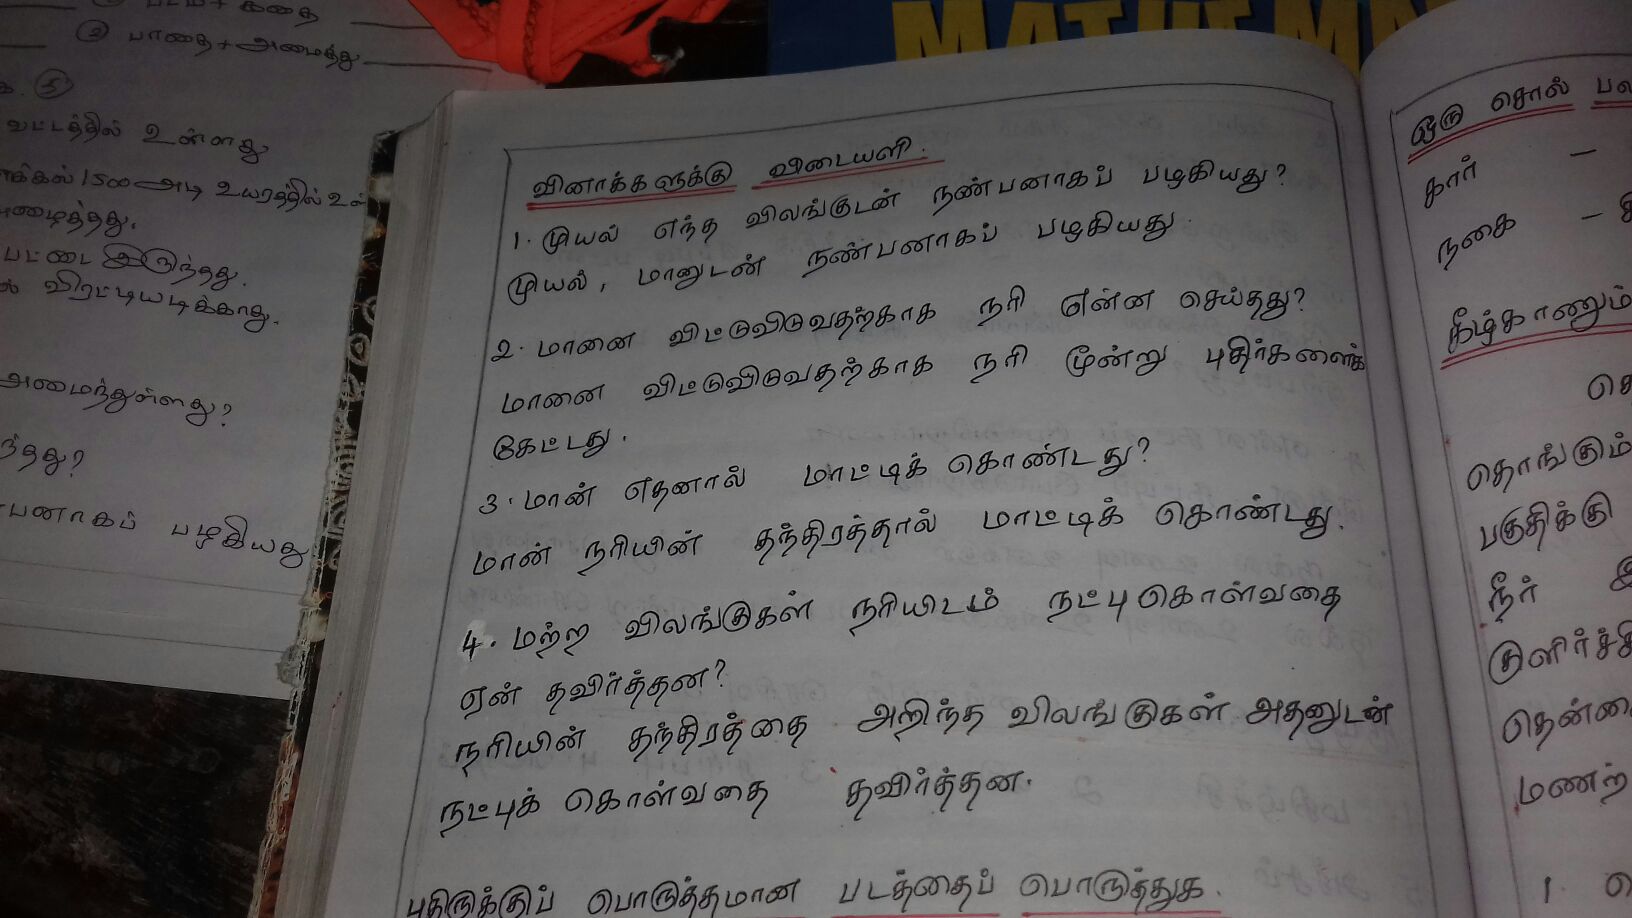 படம் + கதை
② பாதை + அமைத்து
வட்டத்தில் உள்ளது
1500 அடி உயரத்தில்
பட்டை இருந்தது.
விரட்டியடிக்காது.
அமைந்துள்ளது?
பழகியது
MATHEMA
வினாக்களுக்கு விடையளி.
1. முயல் எந்த விலங்குடன் நண்பனாகப் பழகியது?
முயல், மானுடன் நண்பனாகப் பழகியது.
2. மானை விட்டுவிடுவதற்காக நரி என்ன செய்தது?
மானை விட்டுவிடுவதற்காக நரி மூன்று புதிர்களைக்
கேட்டது.
3. மான் எதனால் மாட்டிக் கொண்டது?
மான் நரியின் தந்திரத்தால் மாட்டிக் கொண்டது.
4. மற்ற விலங்குகள் நரியிடம் நட்புகொள்வதை
ஏன் தவிர்த்தன?
நரியின் தந்திரத்தை அறிந்த விலங்குகள் அதனுடன்
நட்புக் கொள்வதை தவிர்த்தன.
புதிருக்குப் பொருத்தமான படத்தைப் பொருத்துக.
ஒரு சொல் பல
கார் –
நகை –
கீழ்காணும்
தொங்கும்
பகுதிக்கு
நீர்
குளிர்ச்சி
மணற்
1.